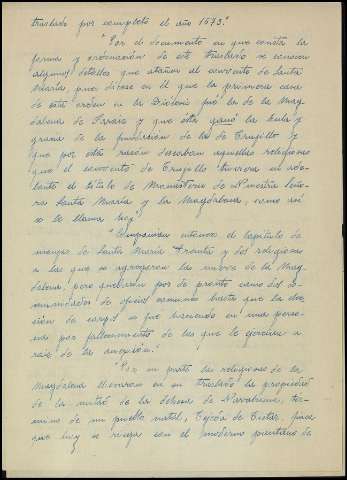 traslado por completo el año 1573."
"Por el documento en que consta la
forma y ordenación de este traslado se conocen
algunos detalles que atañen al convento de Santa
María pues dícese en él que la primera casa
de esta orden en la Diócesis fué la de la Mag-
dalena de Jaraiz y que ésta ganó la bula y
gracia de la fundación de la de Trujillo y
que por esta razón deseaban aquellas religiosas
que el convento de Trujillo tuviera en ade-
lante el título de Monasterio de Nuestra Seño-
ra Santa María y la Magdalena, como así
se le llama hoy."
"Componían entonces el capítulo de
monjas de Santa María treinta y dos religiosas
a las que se agregaron las nueve de la Mag-
dalena, pero quedaron por de pronto como dos co-
munidades de oficios comunes hasta que la elec-
ción de cargos se fué haciendo en una perso-
na por fallecimiento de las que le ejercían a
raíz de la unión."
"Por su parte las religiosas de la
Magdalena llevaron en su traslado la propiedad
de la mitad de la dehesa de Navabuena, tér-
mino de mi pueblo natal, Tejeda de Tiétar, que
hoy se riega con el moderno pantano de